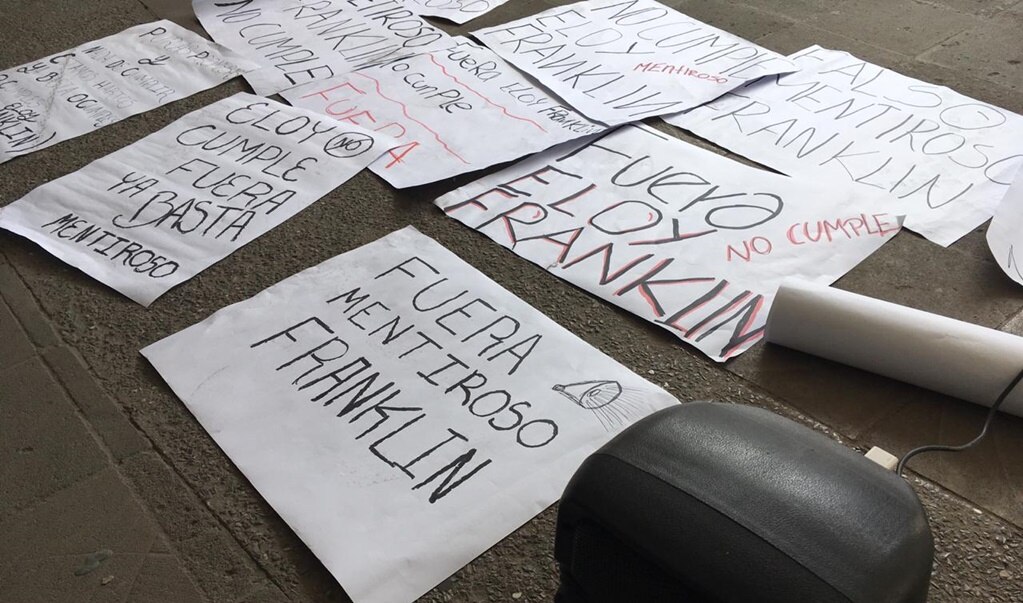 NO CUMPLE
FRANKLIN
MENTIROSO
FUERA ELOY FRANKLIN
NO CUMPLE
FUERA
NO CUMPLE
ELOY
MENTIROSO
FRANKLIN
FALSO
MENTIROSO
FRANKLIN
ELOY NO
CUMPLE
FUERA
YA BASTA
MENTIROSO
Fuera
ELOY
NO CUMPLE
FRANKLIN
FUERA
MENTIROSO
FRANKLIN